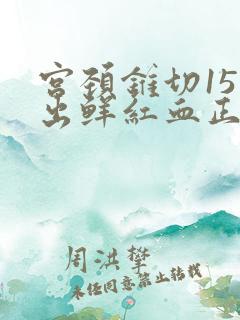 宫颈锥切15
出鲜红血正
周洪攀
未经同意禁止转载